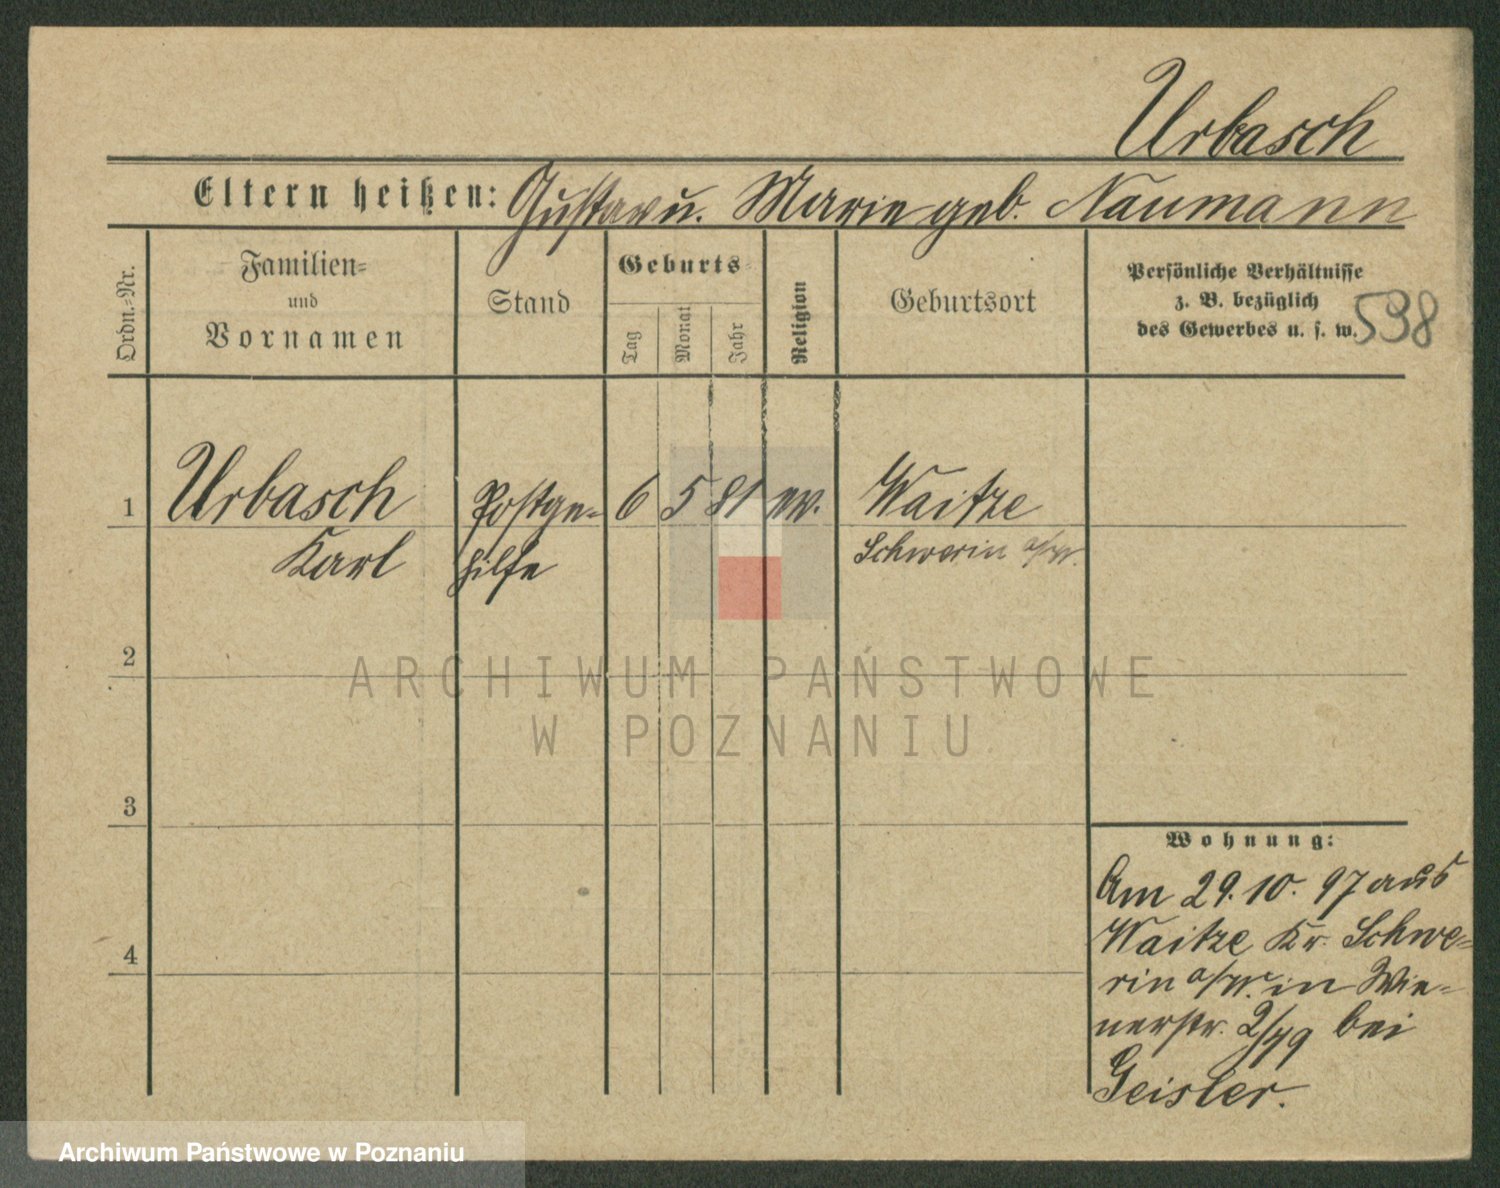 Urbasch
Eltern heißen: Gustav u. Marie geb. Naumann
Ordn.-Nr.
Familien-
und
Vornamen
Stand
Geburts-
Tag
Monat
Jahr
Religion
Geburtsort
Persönliche Verhältnisse
z. B. bezüglich
des Gewerbes u. s. w.
538
1 Urbasch Postge- 6 5 81 ev. Waitze
Karl hilfe Schwerin a/W.
2
ARCHIWUM PAŃSTWOWE
W POZNANIU
3
4
Wohnung:
Am 29. 10. 97 aus
Waitze Kr. Schwe-
rin a/W. in Wie-
nerstr. bei
Geisler.
Archiwum Państwowe w Poznaniu